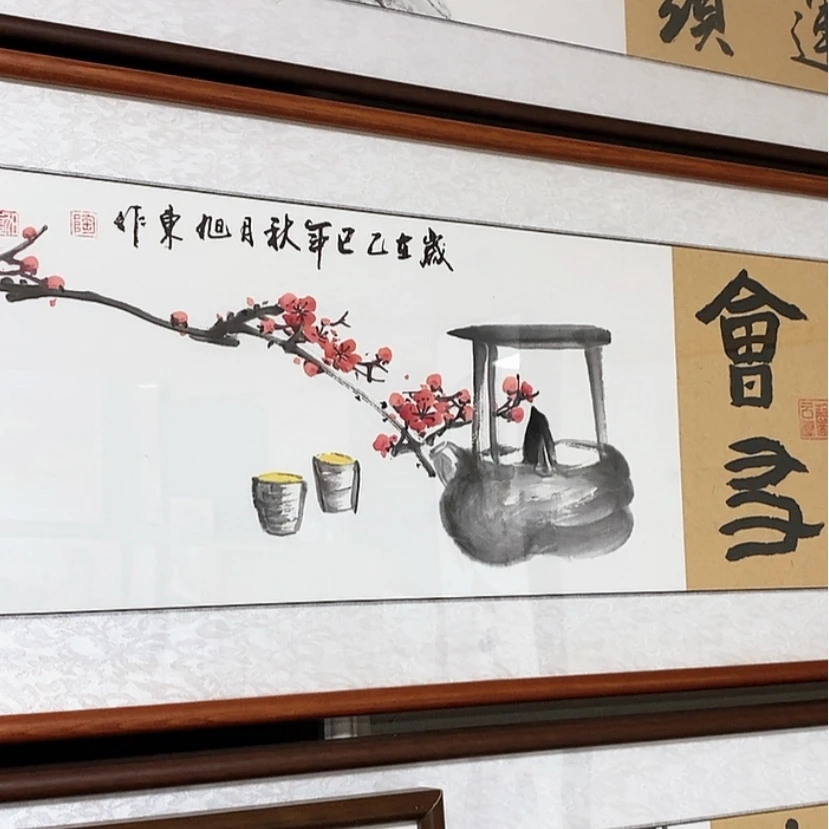 運
頭
會友
歲在乙巳年秋月旭東作
陶